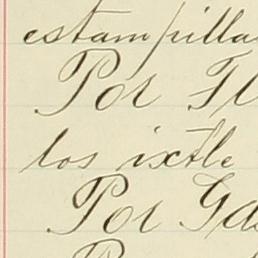 estampilla
Por Fl
los ixtle
Por Gas